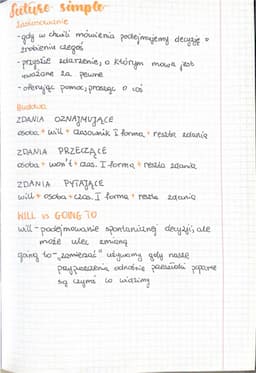 future simple
Zastosowanie
- gdy w chwili mówienia podejmujemy decyzję o
zrobieniu czegoś
- przyszłe zdarzenie, o którym mowa jest
uważane za pewne
- oferując pomoc, prosząc o coś
Budowa
ZDANIA OZNAJMUJĄCE
osoba + will + czasownik I forma + reszta zdania
ZDANIA PRZECZĄCE
osoba + won't + czas. I forma + reszta zdania
ZDANIA PYTAJĄCE
will + osoba + czas. I forma + reszta zdania
WILL vs GOING TO
will - podejmowanie spontanicznej decyzji, ale
może ulec zmianą
going to - „zamierzać" używamy gdy nasze
przypuszczenia odnośnie przyszłości poparte
są czymś co widzimy